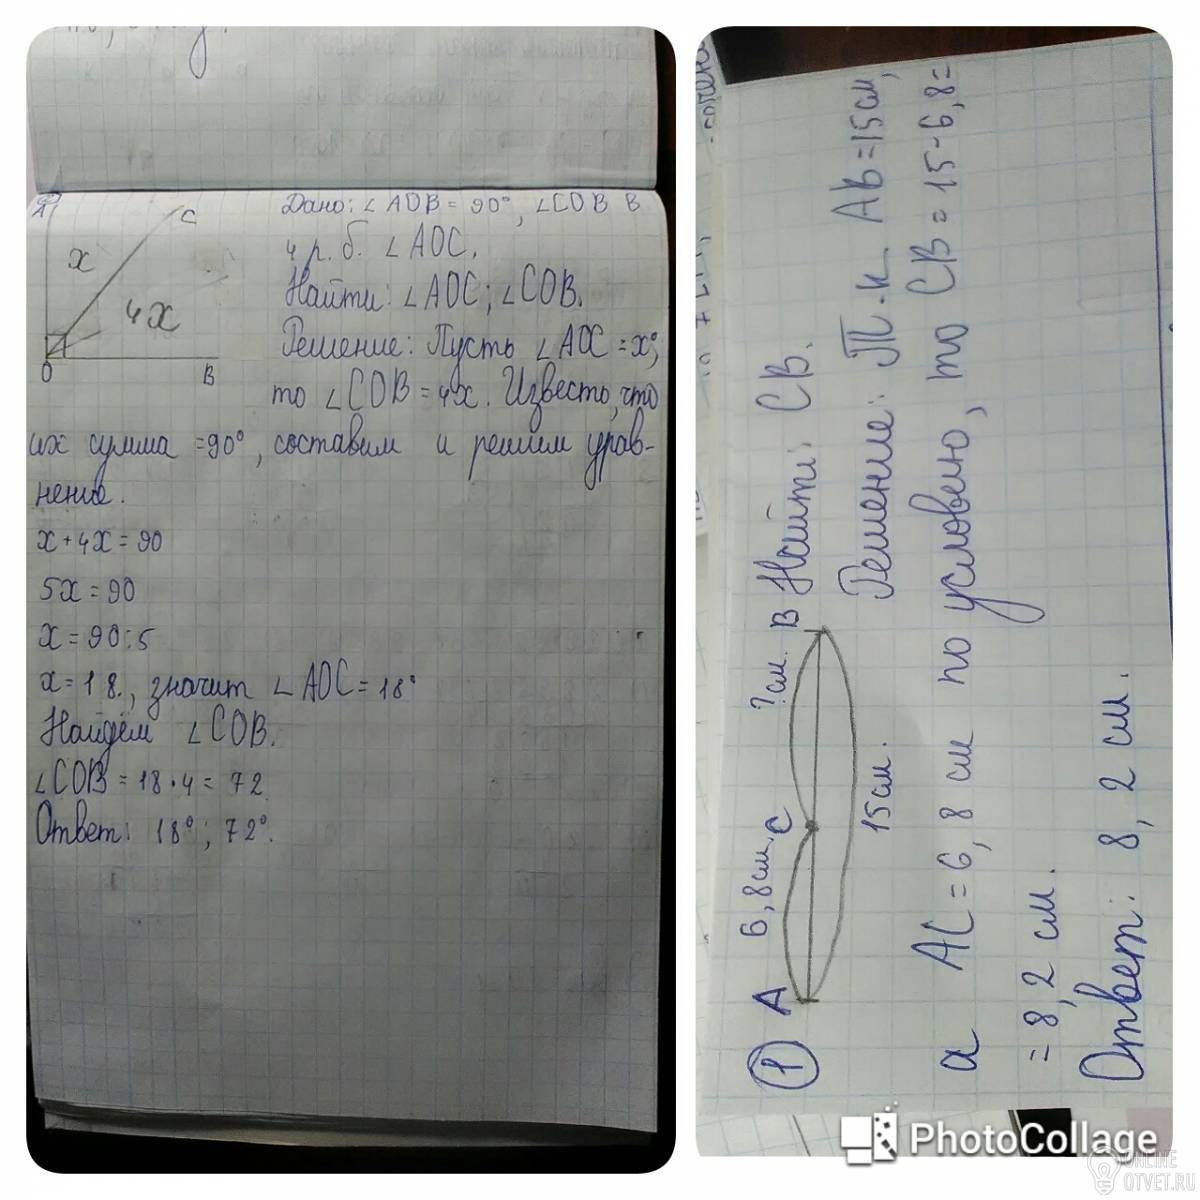 A
C
x
4x
O
B
Дано: ∠AOB = 90°, ∠COB в
4 р. б. ∠AOC.
Найти: ∠AOC; ∠COB.
Решение: Пусть ∠AOC = x°,
то ∠COB = 4x. Известо, что
их сумма =90°, составим и решим урав-
нение.
x + 4x = 90
5x = 90
x = 90:5
x = 18., значит ∠AOC = 18°
Найдём ∠COB.
∠COB = 18·4 = 72
Ответ: 18°; 72°.
1
A 6,8см, C ?см. B Найти: CB.
15см.
Решение: Т.к. AB=15см,
а AC=6,8 см по условею, то CB=15-6,8=
=8,2 см.
Ответ: 8,2 см.
PhotoCollage
ONLINE
OTVET.RU